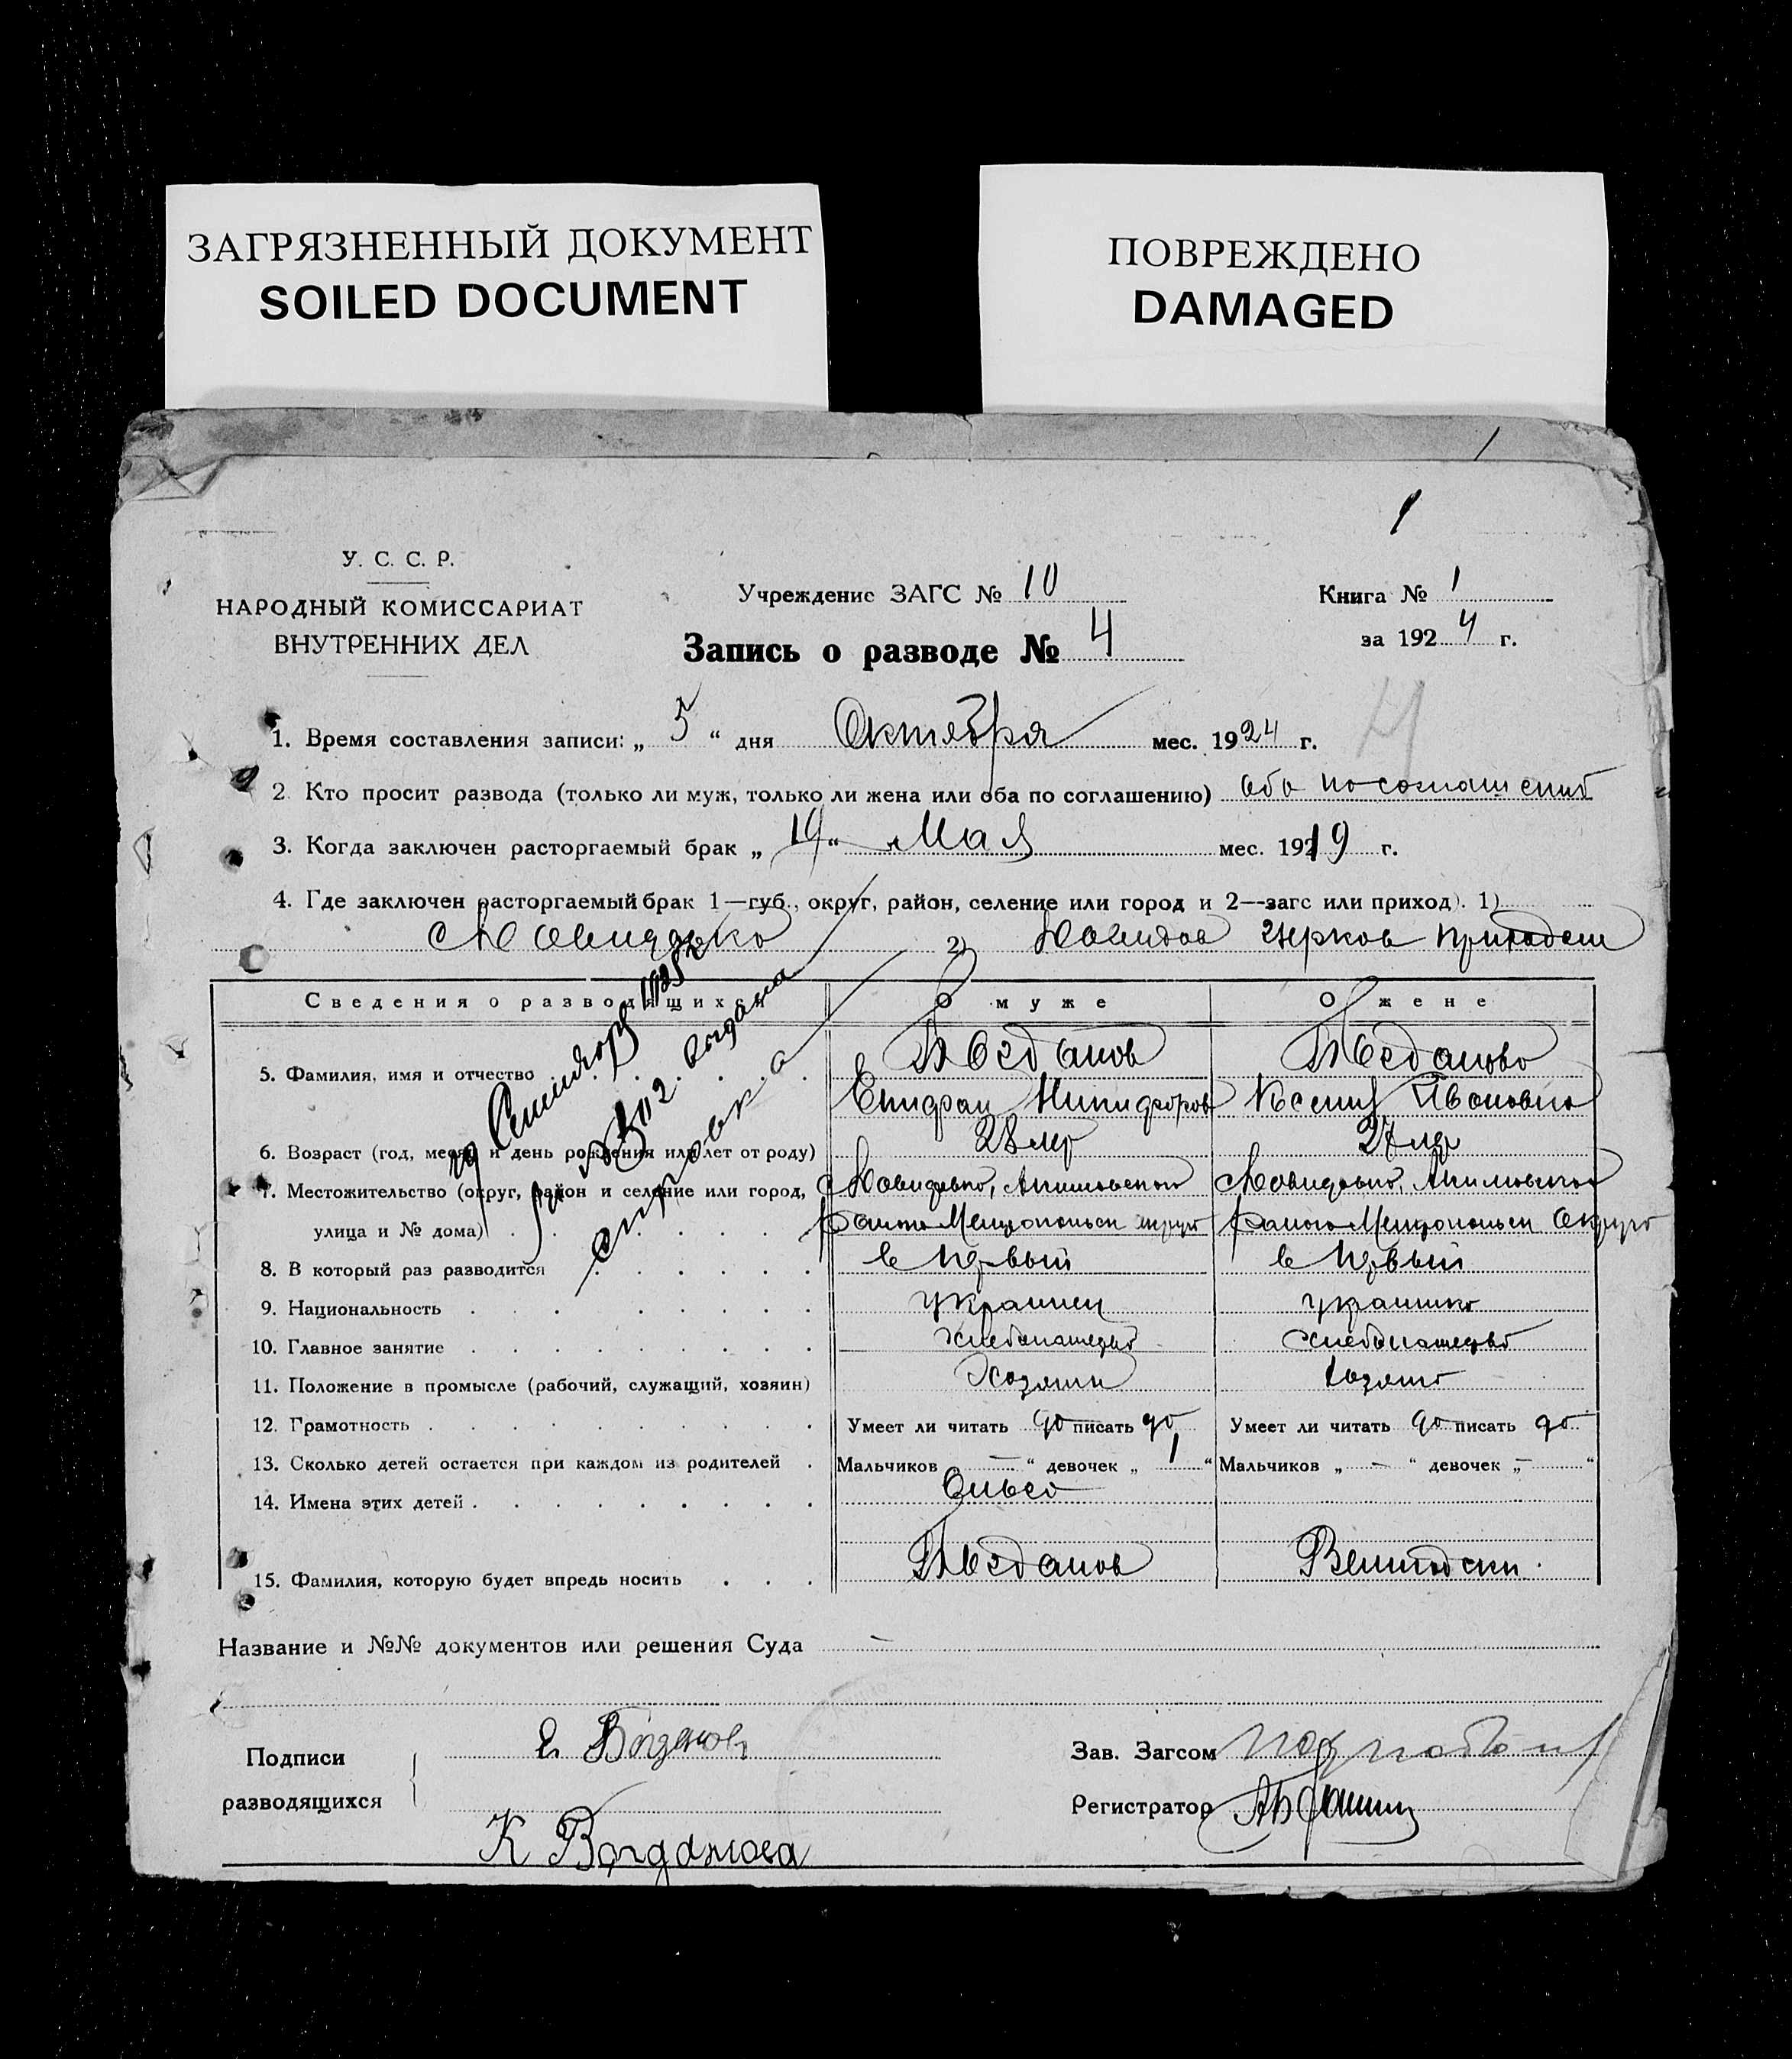 ЗАГРЯЗНЕННЫЙ ДОКУМЕНТ
SOILED DOCUMENT
ПОВРЕЖДЕНО
DAMAGED
1
1
У. С. С. Р.
НАРОДНЫЙ КОМИССАРИАТ
ВНУТРЕННИХ ДЕЛ
Учреждение ЗАГС № 10
Запись о разводе № 4
Книга № 1
за 1924 г.
4
1. Время составления записи: „ 5 “ дня Октября мес. 1924 г.
2. Кто просит развода (только ли муж, только ли жена или оба по соглашению) оба по
3. Когда заключен расторгаемый брак „ “ Мая мес. 1919 г.
4. Где заключен расторгаемый брак 1—губ., округ, район, селение или город и 2—загс или приход). 1)
2)
Сведения о разводящихся О муже О жене
5. Фамилия, имя и отчество Богданов Богданово
Епифан Никифоров Ксения Ивановна
6. Возраст (год, месяц и день рождения или лет от роду) 28 лет 27 лет
7. Местожительство (округ, район и селение или город,
улица и № дома)
8. В который раз разводится в первый в первый
9. Национальность украинец украинка
10. Главное занятие
11. Положение в промысле (рабочий, служащий, хозяин) Хозяин
12. Грамотность Умеет ли читать да писать да Умеет ли читать да писать да
13. Сколько детей остается при каждом из родителей Мальчиков — “ девочек „ 1 “ Мальчиков „ — “ девочек „ — “
14. Имена этих детей
15. Фамилия, которую будет впредь носить Богданов
справка
Название и №№ документов или решения Суда —
Подписи
разводящихся
Е Богданов
К Богданова
Зав. Загсом
Регистратор